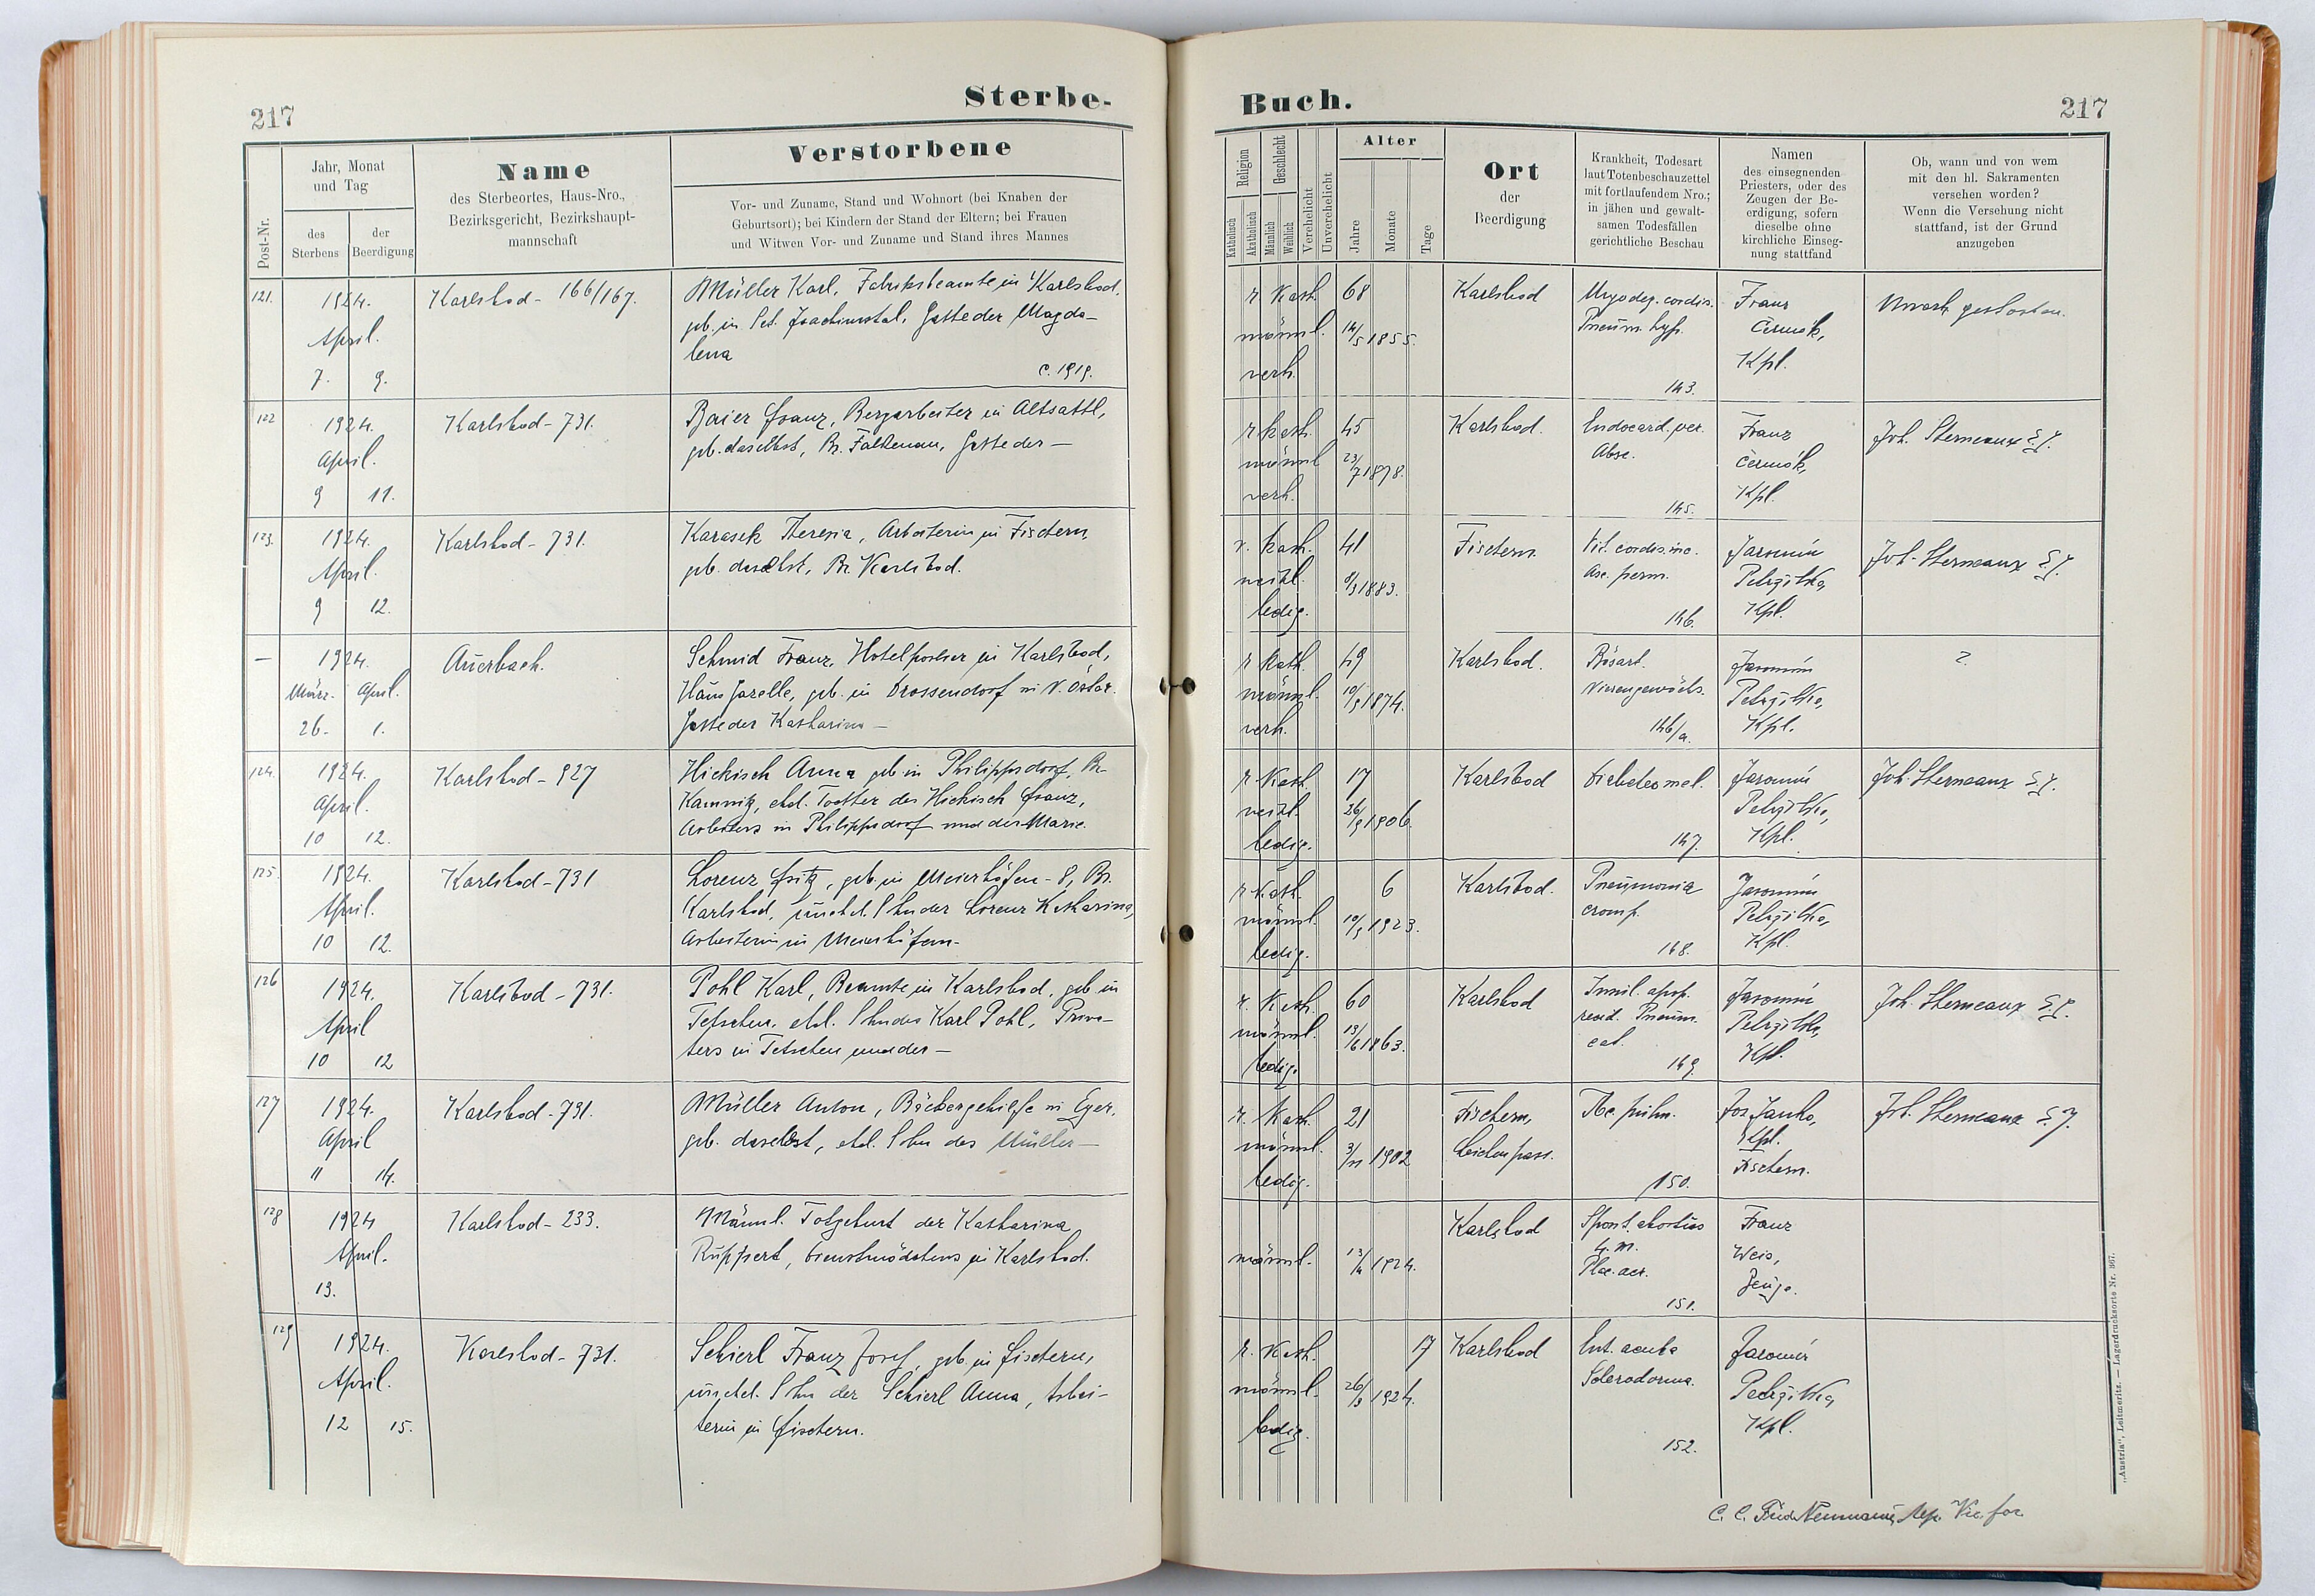 217
Sterbe-
Post-Nr.
Jahr, Monat
und Tag
des
Sterbens
der
Beerdigung
Name
des Sterbeortes, Haus-Nro.,
Bezirksgericht, Bezirkshaupt-
mannschaft
Verstorbene
Vor- und Zuname, Stand und Wohnort (bei Knaben der
Geburtsort); bei Kindern der Stand der Eltern; bei Frauen
und Witwen Vor- und Zuname und Stand ihres Mannes
121.
1924.
April.
7. 9.
Karlsbad - 166/167.
Müller Karl, Fabriksbeamte in Karlsbad,
geb. in Sct. Joachimstal, Gatte der Magda-
lena
c. 1919.
122
1924.
April.
9 11.
Karlsbad - 731.
Baier Franz, Bergarbeiter in Altsattl,
geb. daselbst, Bz. Falkenau, Gatte der —
123.
1924.
April.
9 12.
Karlsbad - 731.
Karasek Theresia, Arbeiterin in Fischern,
geb. daselbst, Bz. Karlsbad.
—
1924.
März. April.
26. 1.
Auerbach.
Schmid Franz, Hotelportier in Karlsbad,
Haus Gazelle, geb. in Drossendorf in N. Öster.
Gatte der Katharina —
124.
1924.
April.
10 12.
Karlsbad - 927
Hickisch Anna geb in Philippsdorf, Bz.
Kamnitz, ehel. Tochter des Hickisch Franz,
Arbeiters in Philippsdorf und der Marie.
125.
1924.
April.
10 12.
Karlsbad - 731
Lorenz Fritz, geb. in Meierhöfen - 8, Bz.
Karlsbad, unehel. Sohn der Lorenz Katharina,
Arbeiterin in Meierhöfen.
126
1924.
April
10 12
Karlsbad - 731.
Pohl Karl, Beamte in Karlsbad, geb in
Tetschen, ehl. Sohn des Karl Pohl, Priva-
ters in Tetschen und der —
127
1924.
April
11 14.
Karlsbad - 731.
Müller Anton, Bäckergehilfe in Eger,
geb. daselbst, ehl. Sohn des Müller —
128
1924
April.
13.
Karlsbad - 233.
Männl. Totgeburt der Katharina
Ruppert, Dienstmädchens in Karlsbad.
129
1924.
April.
12 15.
Karlsbad - 731.
Schierl Franz Josef, geb. in Fischern,
unehel. Sohn der Schierl Anna, Arbei-
terin in Fischern.
Buch.
217
Religion
Katholisch
Akatholisch
Geschlecht
Männlich
Weiblich
Verehelicht
Unverehelicht
Alter
Jahre
Monate
Tage
Ort
der
Beerdigung
Krankheit, Todesart
laut Totenbeschauzettel
mit fortlaufendem Nro.;
in jähen und gewalt-
samen Todesfällen
gerichtliche Beschau
Namen
des einsegnenden
Priesters, oder des
Zeugen der Be-
erdigung, sofern
dieselbe ohne
kirchliche Einseg-
nung stattfand
Ob, wann und von wem
mit den hl. Sakramenten
versehen worden?
Wenn die Versehung nicht
stattfand, ist der Grund
anzugeben
r. Kath.
männl.
verh.
68
14/5 1855.
Karlsbad
Myodeg. cordis.
Pneum. hyp.
143.
Franz
Čermák,
Kpl.
gestorben.
r. kath.
männl
verh.
45
23/7 1878.
Karlsbad.
Endocard. ver.
Absc.
145.
Franz
Čermák,
Kpl.
Joh. Sterneaux S.J.
r. kath.
weibl.
ledig.
41
9/3 1883.
Fischern
Vit. cordis. inc.
146.
Jaromír
Petrzilka,
Kpl.
Joh. Sterneaux S.J.
r. kath.
männl.
verh.
49
10/9 1874.
Karlsbad.
Bösart.
Nierengewächs.
146/a.
Jaromír
Petrzilka,
Kpl.
?
r. Kath.
weibl.
ledig.
17
26/9 1906.
Karlsbad
Diabetes mel.
147.
Jaromír
Petrzilka,
Kpl.
Joh. Sterneaux S.J.
r. Kath.
männl.
ledig.
6
10/9 1923.
Karlsbad.
Pneumonia
croup.
148.
Jaromír
Petrzilka,
Kpl.
r. Kath.
männl.
ledig.
60
13/6 1863.
Karlsbad
Insul. apop.
resid. Pneum.
cat.
149.
Jaromír
Petrzilka,
Kpl.
Joh. Sterneaux S.J.
r. Kath.
männl.
ledig.
21
3/11 1902
Fischern,
Leichenpass.
Tbc. pulm.
150.
Jos. Janka,
Kpl.
Fischern.
Joh. Sterneaux S.J.
männl.
13/4 1924.
Karlsbad
Spont. abortus
4. m.
151.
Franz
Weis,
Zeuge.
r. Kath.
männl.
ledig.
17
26/3 1924.
Karlsbad
Ent. acuta
Scleroderma.
152.
Jaromír
Petrzilka,
Kpl.
„Austria“, Leitmeritz. — Lagerdrucksorte Nr. 367.
C. C. Fried. Neumann, Vic. for.